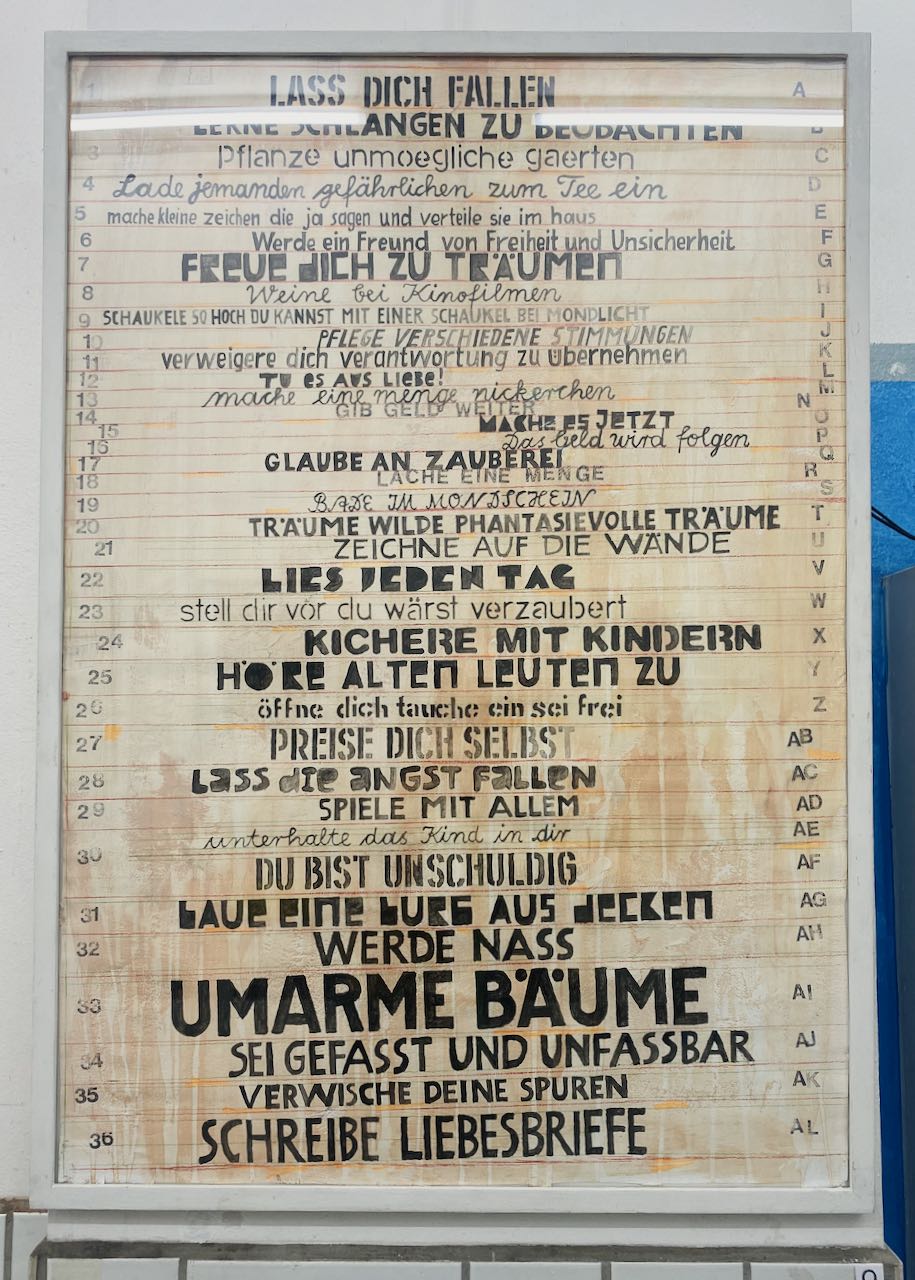 1 LASS DICH FALLEN A
LERNE SCHLANGEN ZU BEOBACHTEN B
3 Pflanze unmoegliche gaerten C
4 Lade jemanden gefährlichen zum Tee ein D
5 mache kleine zeichen die ja sagen und verteile sie im haus E
6 Werde ein Freund von Freiheit und Unsicherheit F
7 FREUE dICH ZU TRÄUMEN G
8 Weine bei Kinofilmen H
9 SCHAUKELE SO HOCH DU KANNST MIT EINER SCHAUKEL BEI MONDLICHT I
10 PFLEGE VERSCHIEDENE STIMMUNGEN J
11 verweigere dich verantwortung zu übernehmen K
12 TU ES AUS LIEBE! L
13 mache eine menge nickerchen M
14 GIB GELD WEITER N
15 MACHE ES JETZT O
16 Das Geld wird folgen P
17 GLAUBE AN ZAUBEREI Q
18 LACHE EINE MENGE R
19 BADE IM MONDSCHEIN S
20 TRÄUME WILDE PHANTASIEVOLLE TRÄUME T
21 ZEICHNE AUF DIE WÄNDE U
22 LIES JEDEN TAG V
23 stell dir vor du wärst verzaubert W
24 KICHERE MIT KINDERN X
25 HÖRE ALTEN LEUTEN ZU Y
26 öffne dich tauche ein sei frei Z
27 PREISE DICH SELBST AB
28 LASS die ANGST FALLEN AC
29 SPIELE MIT ALLEM AD
unterhalte das Kind in dir AE
30 DU BIST UNSCHULDIG AF
31 bAUE EINE bURG AUS dECKEN AG
32 WERDE NASS AH
33 UMARME BÄUME AI
34 SEI GEFASST UND UNFASSBAR AJ
35 VERWISCHE DEINE SPUREN AK
36 SCHREIBE LIEBESBRIEFE AL